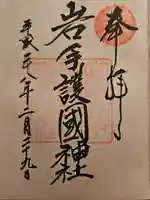 奉拝
岩手護國神社
平成二八年二月二十九日